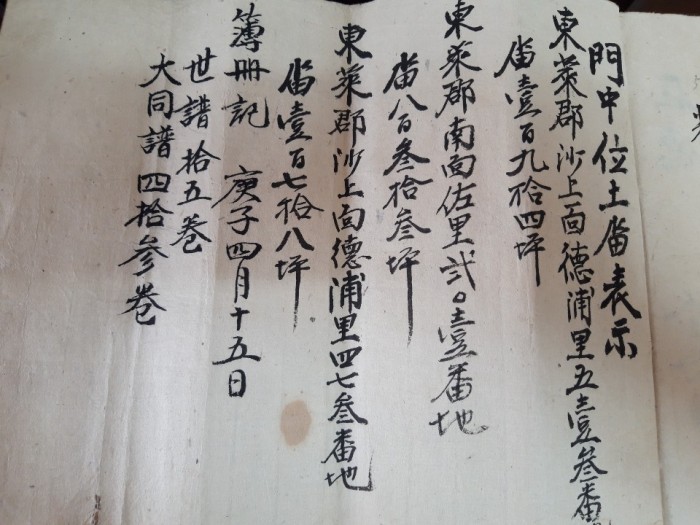 門中位土畓表示
東萊郡沙上面德浦里五壹叁番
畓壹百九拾四坪
東萊郡南面佐里弍〇壹番地
畓八百叁拾叁坪
東萊郡沙上面德浦里四七叁番地
畓壹百七拾八坪
簿冊記 庚子四月十五日
世譜拾五卷
大同譜四拾參卷